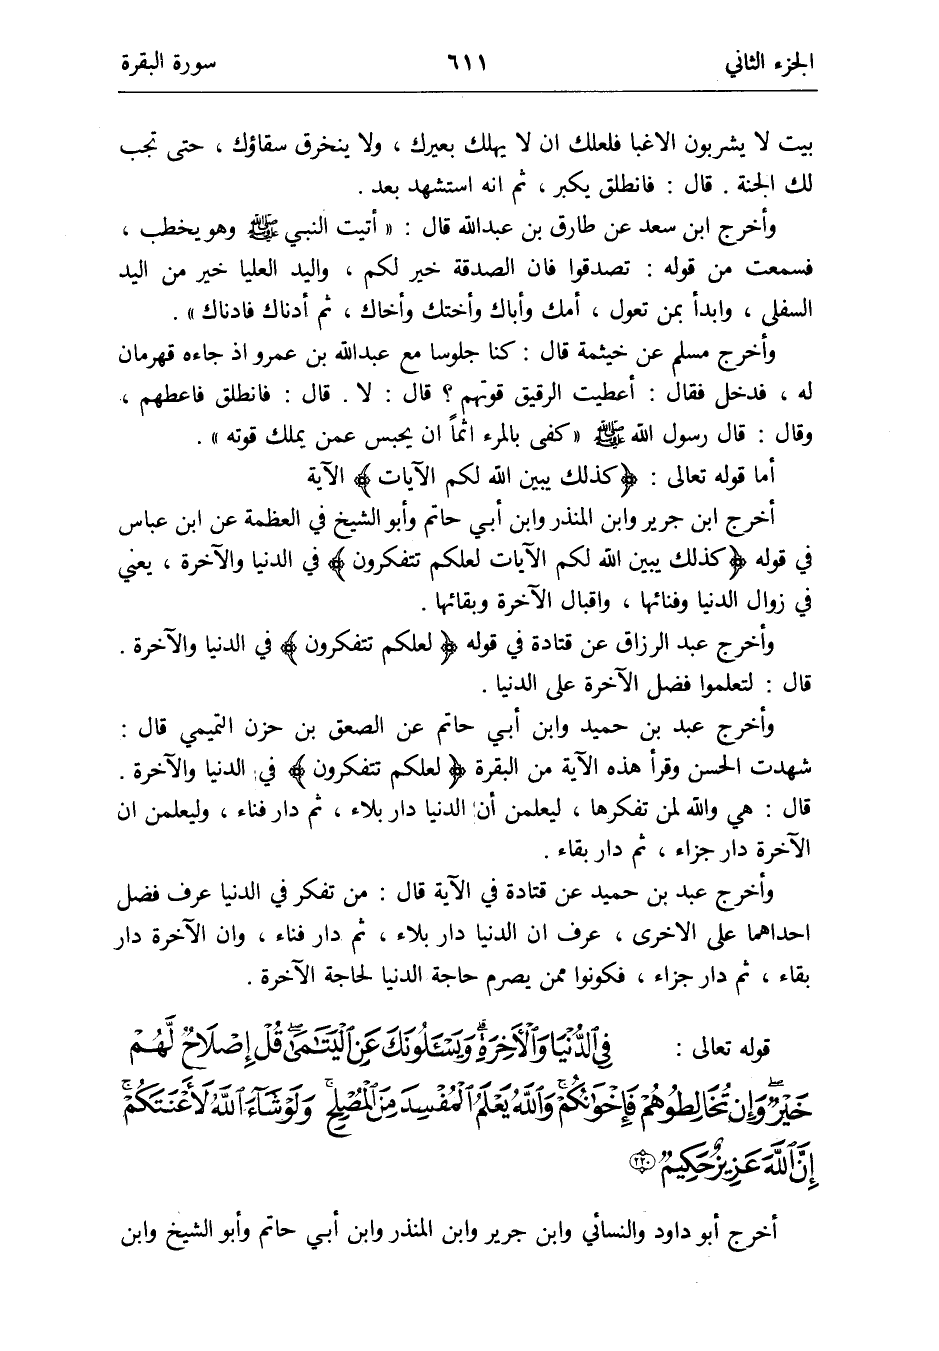 الجزء الثاني ٦١١ سورة البقرة
بيت لا يشربون الاغبا فلعلك ان لا يهلك بعيرك ، ولا ينخرق سقاؤك ، حتى تجب
لك الجنة . قال : فانطلق يكبر ، ثم انه استشهد بعد .
وأخرج ابن سعد عن طارق بن عبدالله قال : « أتيت النبي ﷺ وهو يخطب ،
فسمعت من قوله : تصدقوا فان الصدقة خير لكم ، واليد العليا خير من اليد
السفلى ، وابدأ بمن تعول ، أمك وأباك وأختك وأخاك ، ثم أدناك فادناك » .
وأخرج مسلم عن خيثمة قال : كنا جلوسا مع عبدالله بن عمرو اذ جاءه قهرمان
له ، فدخل فقال : أعطيت الرقيق قوتهم ؟ قال : لا . قال : فانطلق فاعطهم ،
وقال : قال رسول الله ﷺ « كفى بالمرء اثماً ان يحبس عمن يملك قوته » .
أما قوله تعالى : ﴿ كذلك يبين الله لكم الآيات ﴾ الآية
أخرج ابن جرير وابن المنذر وابن أبي حاتم وأبو الشيخ في العظمة عن ابن عباس
في قوله ﴿ كذلك يبين الله لكم الآيات لعلكم تتفكرون ﴾ في الدنيا والآخرة ، يعني
في زوال الدنيا وفنائها ، واقبال الآخرة وبقائها .
وأخرج عبد الرزاق عن قتادة في قوله ﴿ لعلكم تتفكرون ﴾ في الدنيا والآخرة .
قال : لتعلموا فضل الآخرة على الدنيا .
وأخرج عبد بن حميد وابن أبي حاتم عن الصعق بن حزن التميمي قال :
شهدت الحسن وقرأ هذه الآية من البقرة ﴿ لعلكم تتفكرون ﴾ في الدنيا والآخرة .
قال : هي والله لمن تفكرها ، ليعلمن أن الدنيا دار بلاء ، ثم دار فناء ، وليعلمن ان
الآخرة دار جزاء ، ثم دار بقاء .
وأخرج عبد بن حميد عن قتادة في الآية قال : من تفكر في الدنيا عرف فضل
احداهما على الاخرى ، عرف ان الدنيا دار بلاء ، ثم دار فناء ، وان الآخرة دار
بقاء ، ثم دار جزاء ، فكونوا ممن يصرم حاجة الدنيا لحاجة الآخرة .
قوله تعالى : فِي ٱلدُّنْيَا وَٱلْأَخِرَةِ ۗ وَيَسْـَٔلُونَكَ عَنِ ٱلْيَتَـٰمَىٰ ۖ قُلْ إِصْلَاحٌ لَّهُمْ
خَيْرٌ ۖ وَإِن تُخَالِطُوهُمْ فَإِخْوَٰنُكُمْ ۚ وَٱللَّهُ يَعْلَمُ ٱلْمُفْسِدَ مِنَ ٱلْمُصْلِحِ ۚ وَلَوْ شَآءَ ٱللَّهُ لَأَعْنَتَكُمْ ۚ
إِنَّ ٱللَّهَ عَزِيزٌ حَكِيمٌ ﴿٢٢٠﴾
أخرج أبو داود والنسائي وابن جرير وابن المنذر وابن أبي حاتم وأبو الشيخ وابن